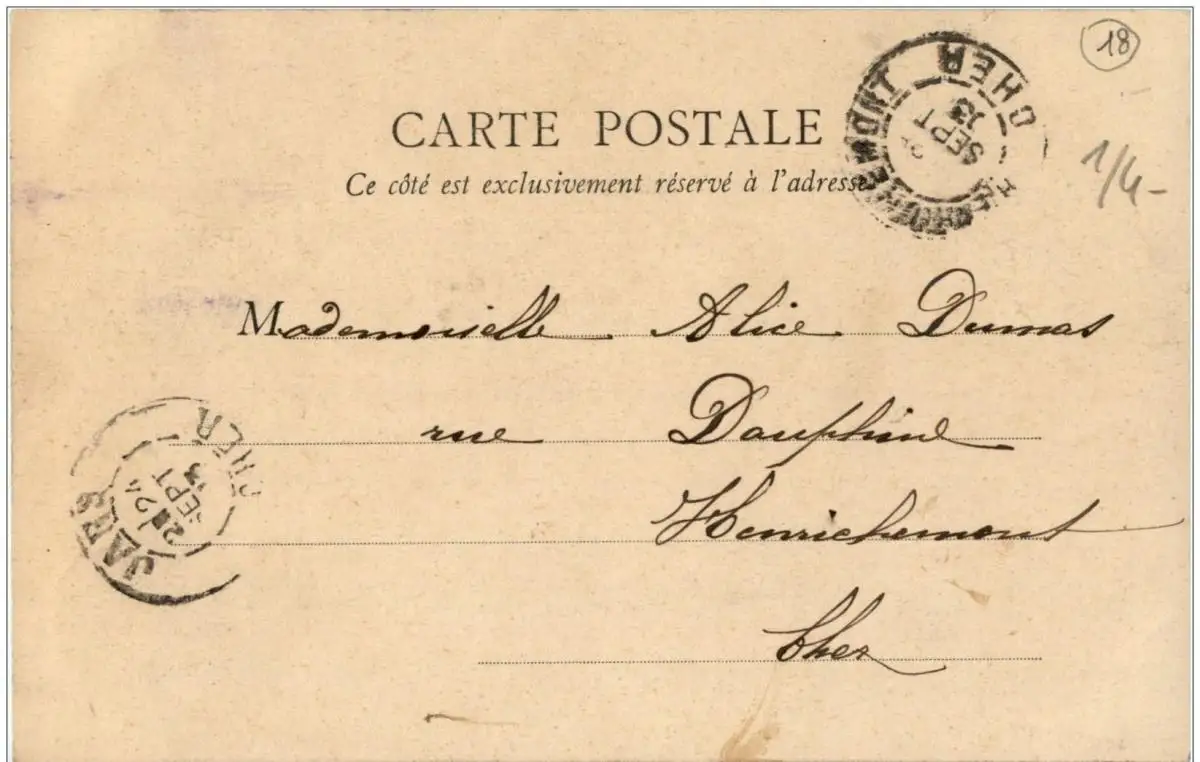 18
CARTE POSTALE
Ce côté est exclusivement réservé à l'adresse
1/4-
HENRICHEMONT CHER
SEPT
03
Mademoiselle Alice Dumas
rue Dauphine
Henrichemont
Cher
JARS CHER
24
SEPT
03